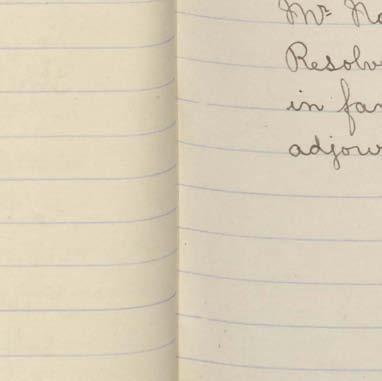 Mr No
Resolve
in fav
adjour